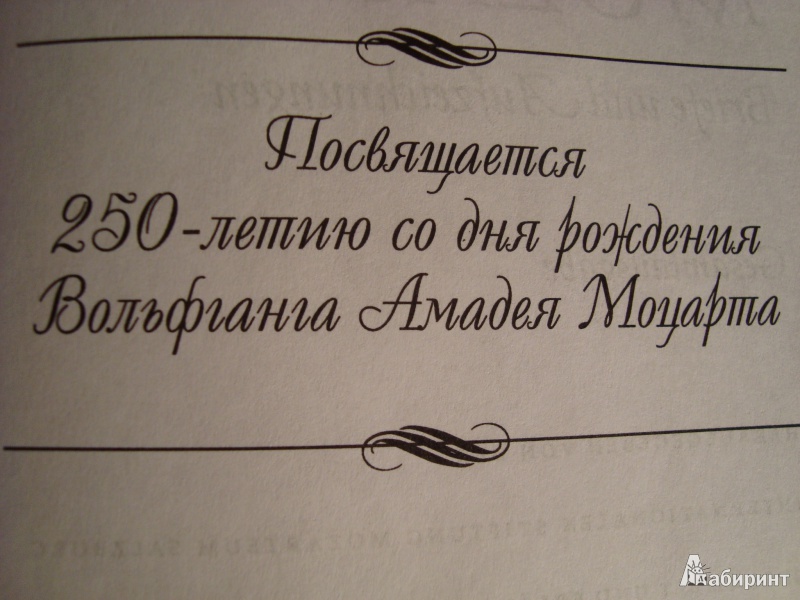 Посвящается
250-летию со дня рождения
Вольфганга Амадея Моцарта
Лабиринт